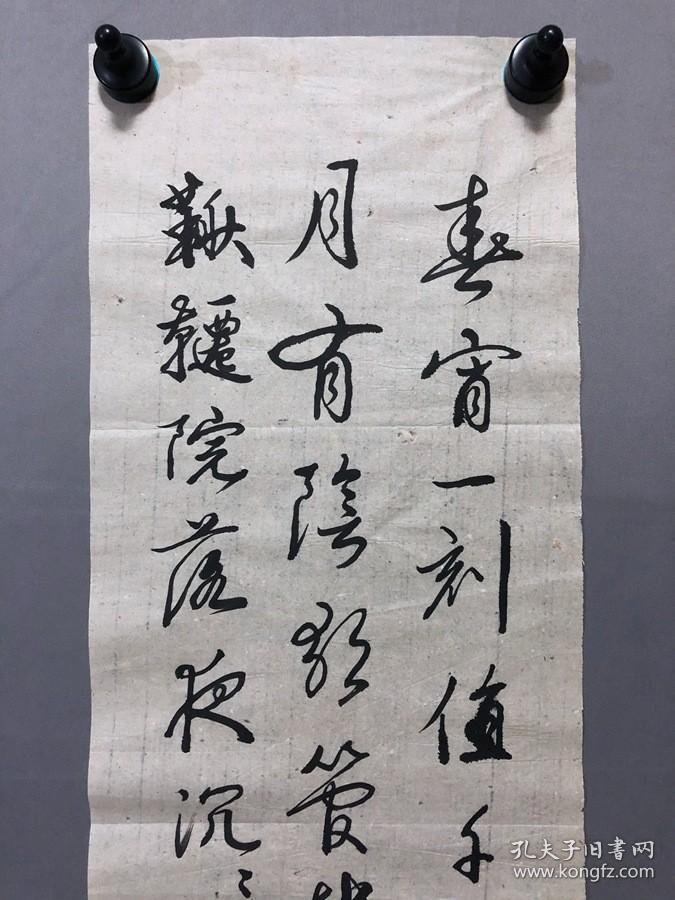 春宵一刻值千
月有陰歌管
鞦韆院落夜沉〻
孔夫子旧书网
www.kongfz.com